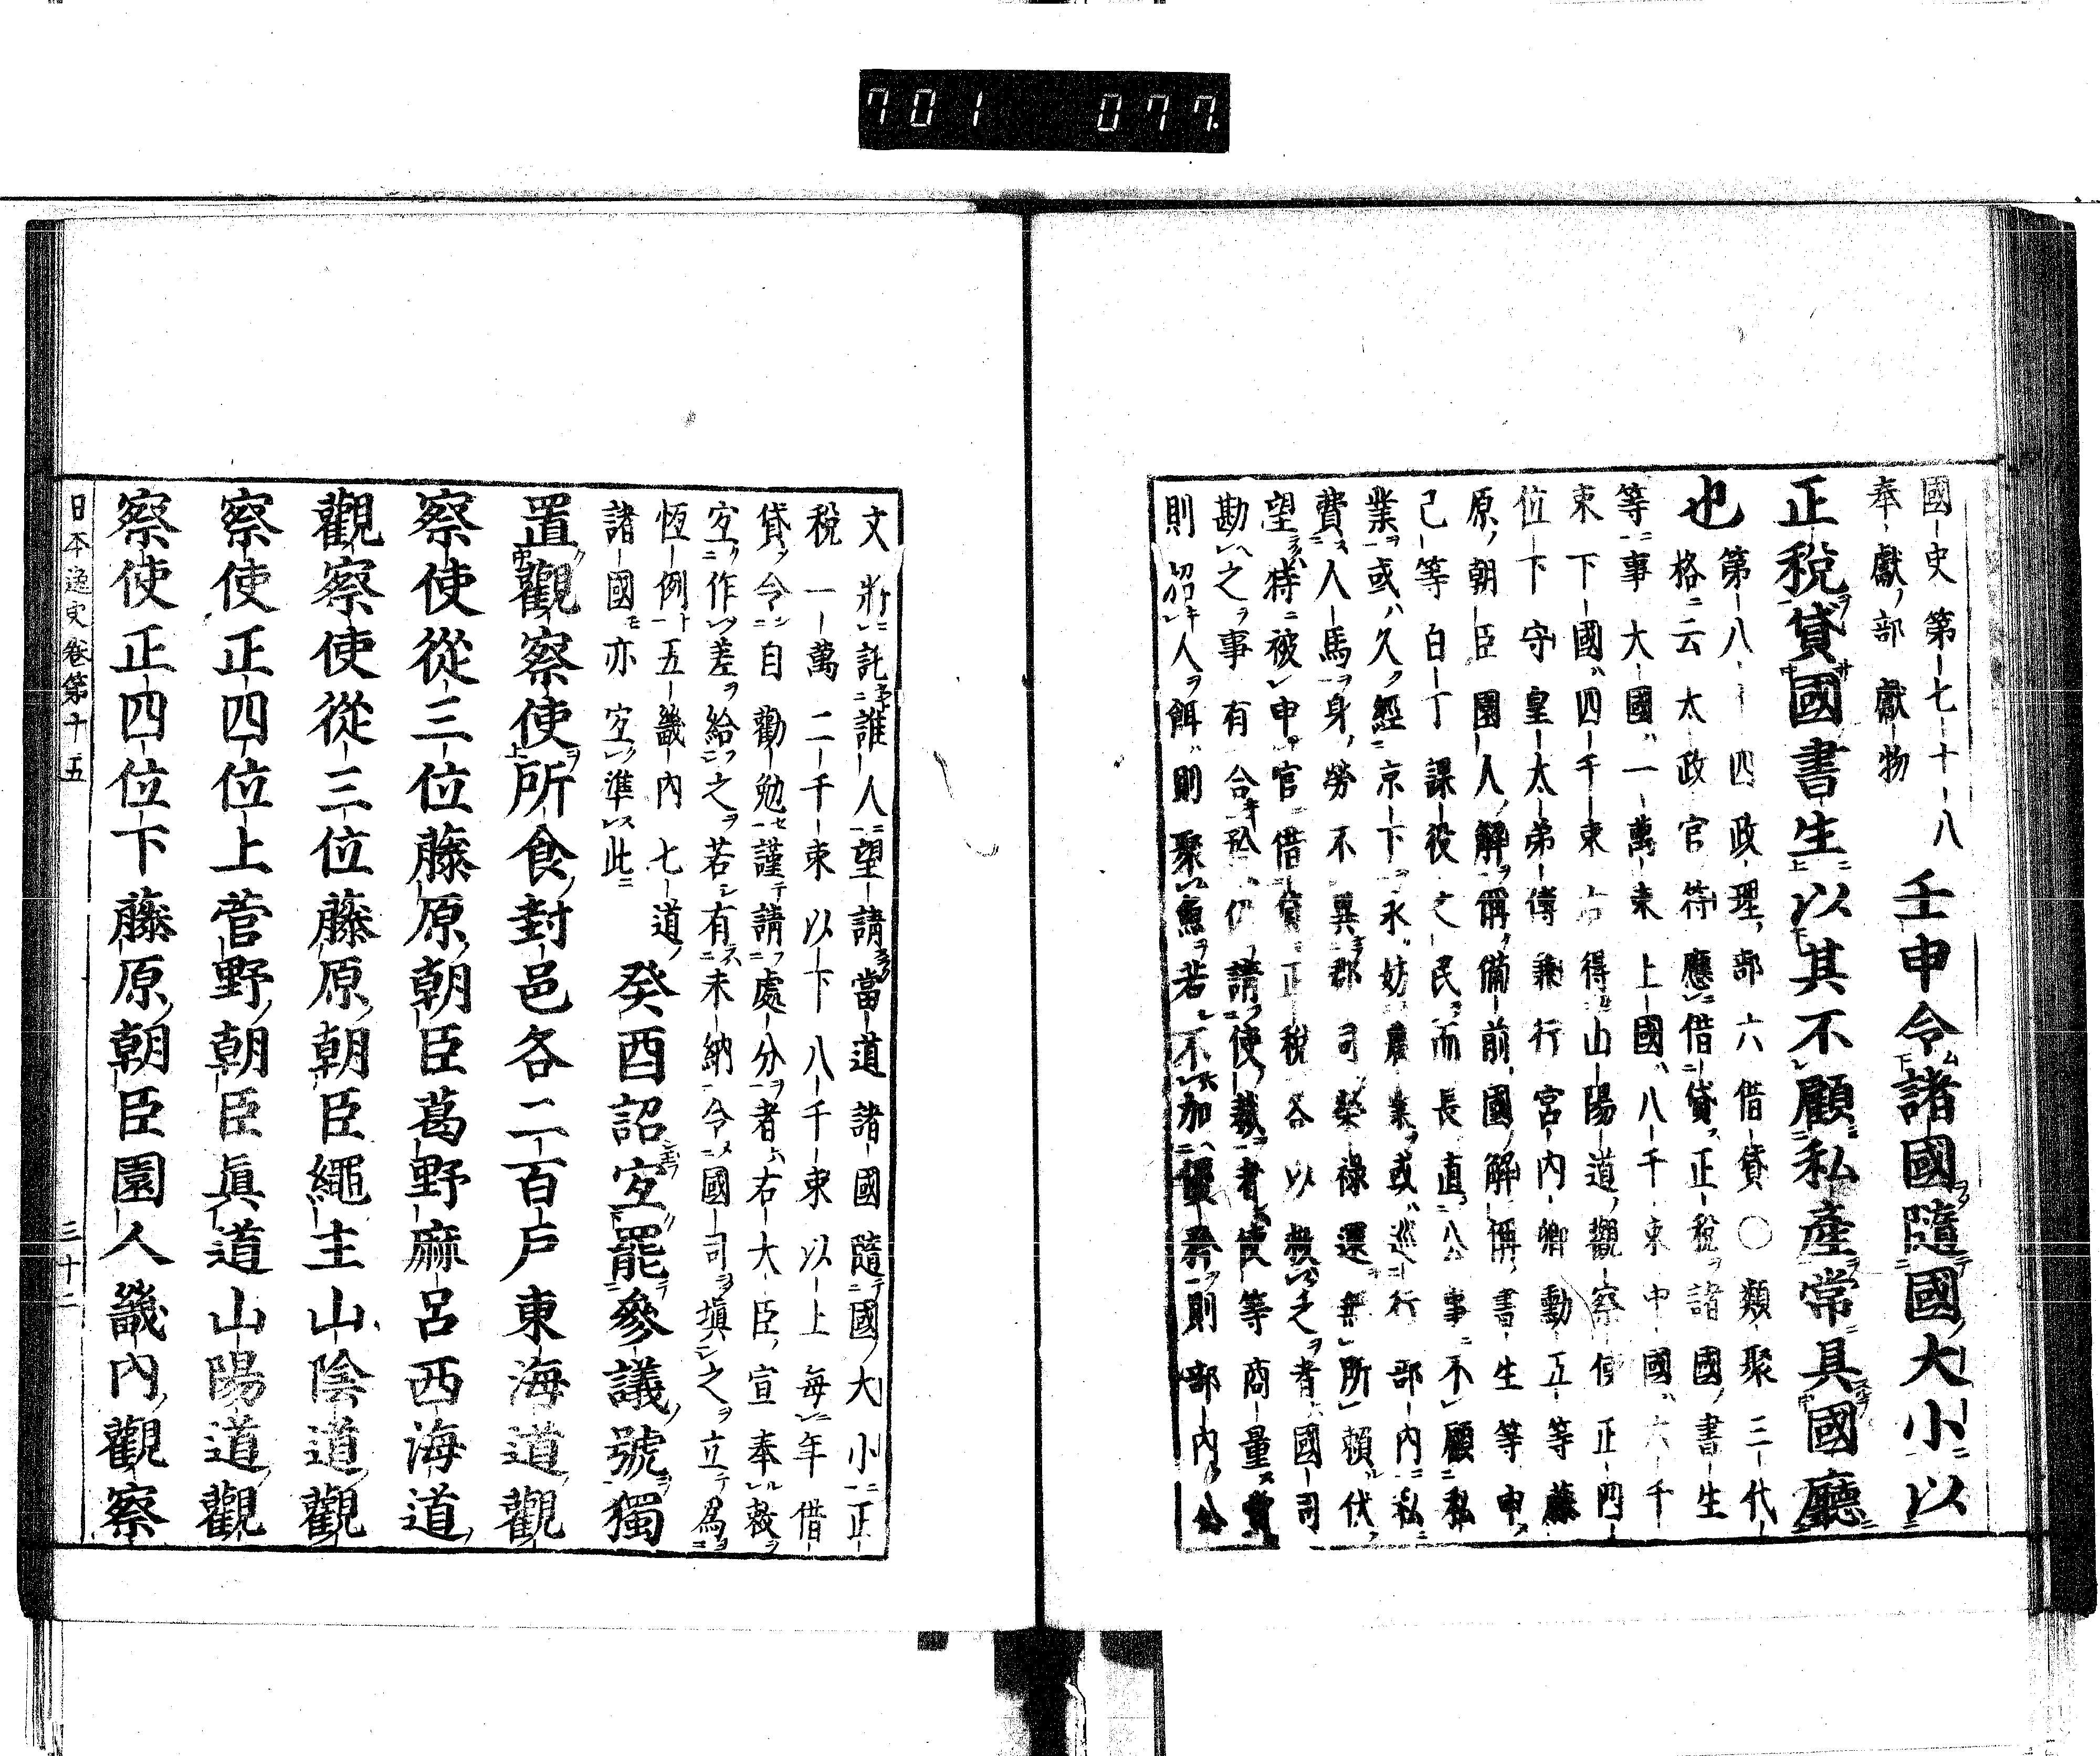 701 077
國史第七十八
奉獻部獻物
壬申令諸國隨國大小以
正稅貸國書生以其不顧私產常具國廳
也
第八十四政理部六借貸〇類聚三代
格云太政官符應借貸正稅諸國書生
等事大國一萬束上國八千束中國六千
束下國四千束右得山陽道觀察使正四
位下守皇太弟傅兼行宮內卿勳五等藤
原朝臣園人解偁備前國解偁書生等申
己等白丁課役之民而長直公事不顧私
業或久經京下永妨農業或巡行部內私
費人馬身勞不異郡司榮祿還無所賴伏
望特被申官借貸正稅各以資之者國司
勘之事有合矜仍請使裁者使等商量
則招人餌則聚魚若不加優矜則部內公
文將託誰人望請當道諸國隨國大小正
稅一萬二千束以下八千束以上每年借
貸令自勸勉謹請處分者右大臣宣奉敕
宜作差給之若有未納令國司塡之立爲
恆例五畿內七道
諸國亦宜準此
癸酉詔宜罷參議號獨
置觀察使所食封邑各二百戶東海道觀
察使從三位藤原朝臣葛野麻呂西海道
觀察使從三位藤原朝臣繩主山陰道觀
察使正四位上菅野朝臣眞道山陽道觀
察使正四位下藤原朝臣園人畿內觀察
日本逸史卷第十五
三十二